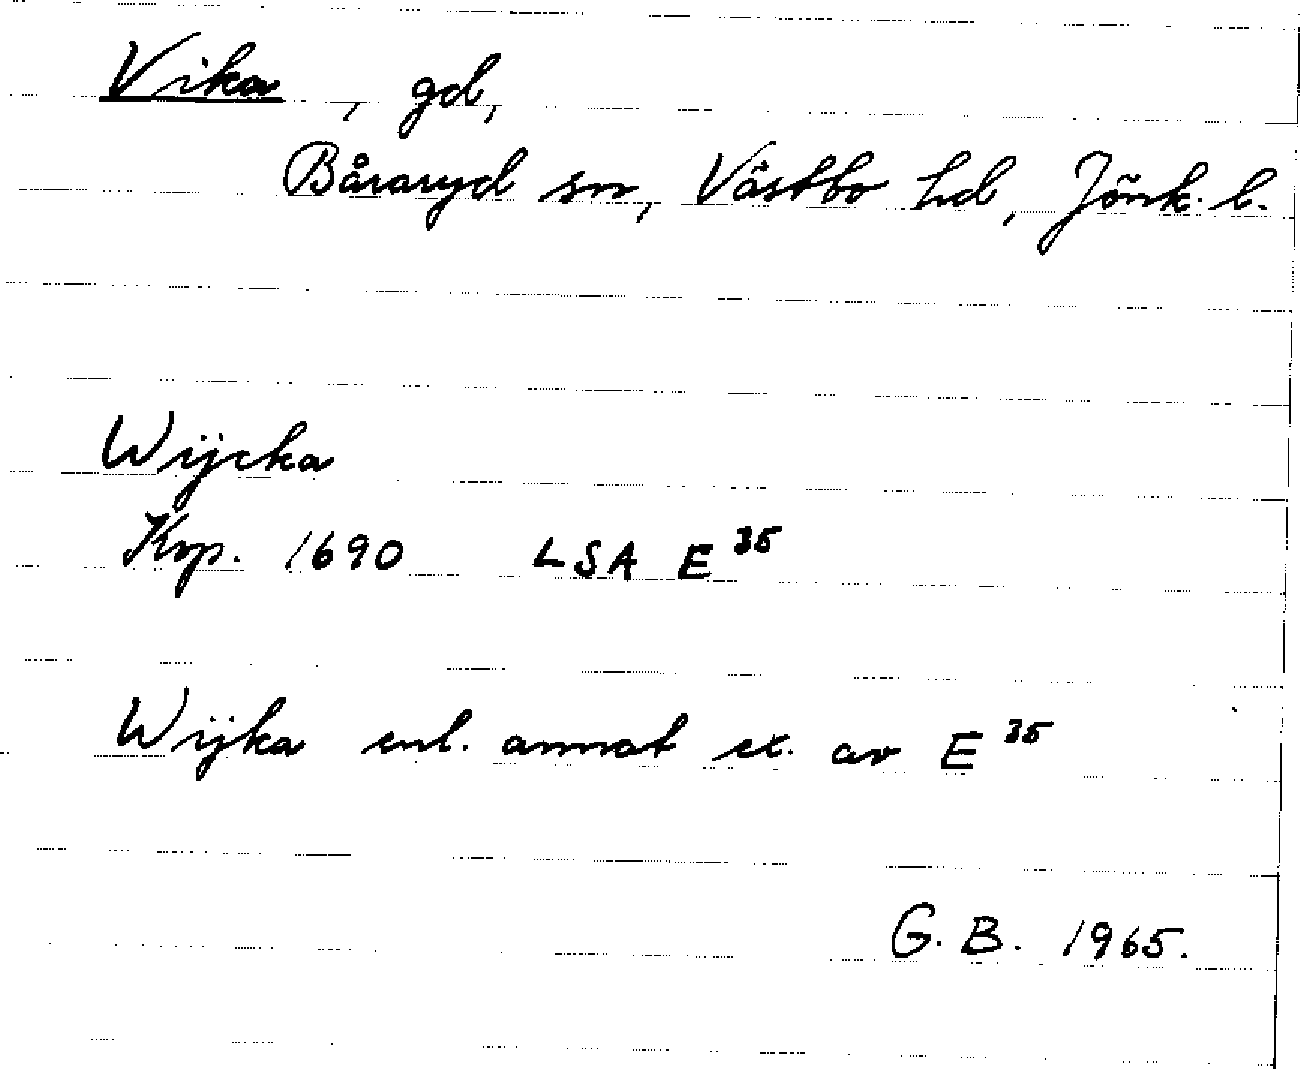 Vika, gd,
Båraryd sn, Västbo hd, Jönk. l.
Wijcka
Kop. 1690 LSA E 35
Wijka enl. annat ex. av E 35
G. B. 1965.